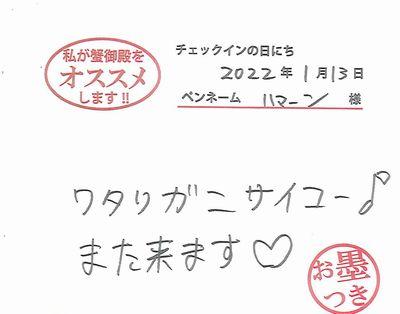 私が蟹御殿を
オススメ
します!!
チェックインの日にち
2022年1月13日
ペンネーム ハマーン 様
ワタリガニサイコー♪
また来ます♡
お墨
つき